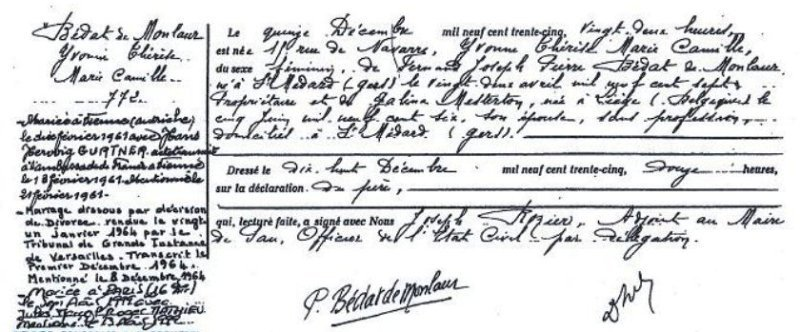 Bédat de Monlaur
Yvonne Thérèse
Marie Camille
772
Mariée à Vienne (Autriche)
le dix février 1961 avec Hans
Herwig GURTNER acte transcrit
à l'ambassade de France à Vienne
le 18 février 1961. Mentionné le
21 février 1961.
Mariage dissous par décision
de Divorce rendue le vingt
un Janvier 1964 par le
Tribunal de Grande Instance
de Versailles. Transcrit le
Premier Décembre 1964.
Mentionné le 8 Décembre 1964
Mariée à PARIS (16
Le quinze Décembre mil neuf cent trente-cinq, vingt deux heures,
est née 15 rue de Navarre, Yvonne Thérèse Marie Camille,
du sexe féminin, de Fernand Joseph Pierre Bédat de Monlaur
né à St Médard (Gers) le vingt deux avril mil neuf cent sept
Propriétaire et de Galina Masterton, née à Liège (Belgique) le
cinq Juin mil neuf cent six, son épouse, sans profession,
domiciliés à St Médard (Gers).
Dressé le dix huit Décembre mil neuf cent trente-cinq, douze heures,
sur la déclaration du père,
qui, lecture faite, a signé avec Nous Joseph Adjoint au Maire
de Pau, Officier de l'Etat Civil par délégation.
P. Bédat de Monlaur